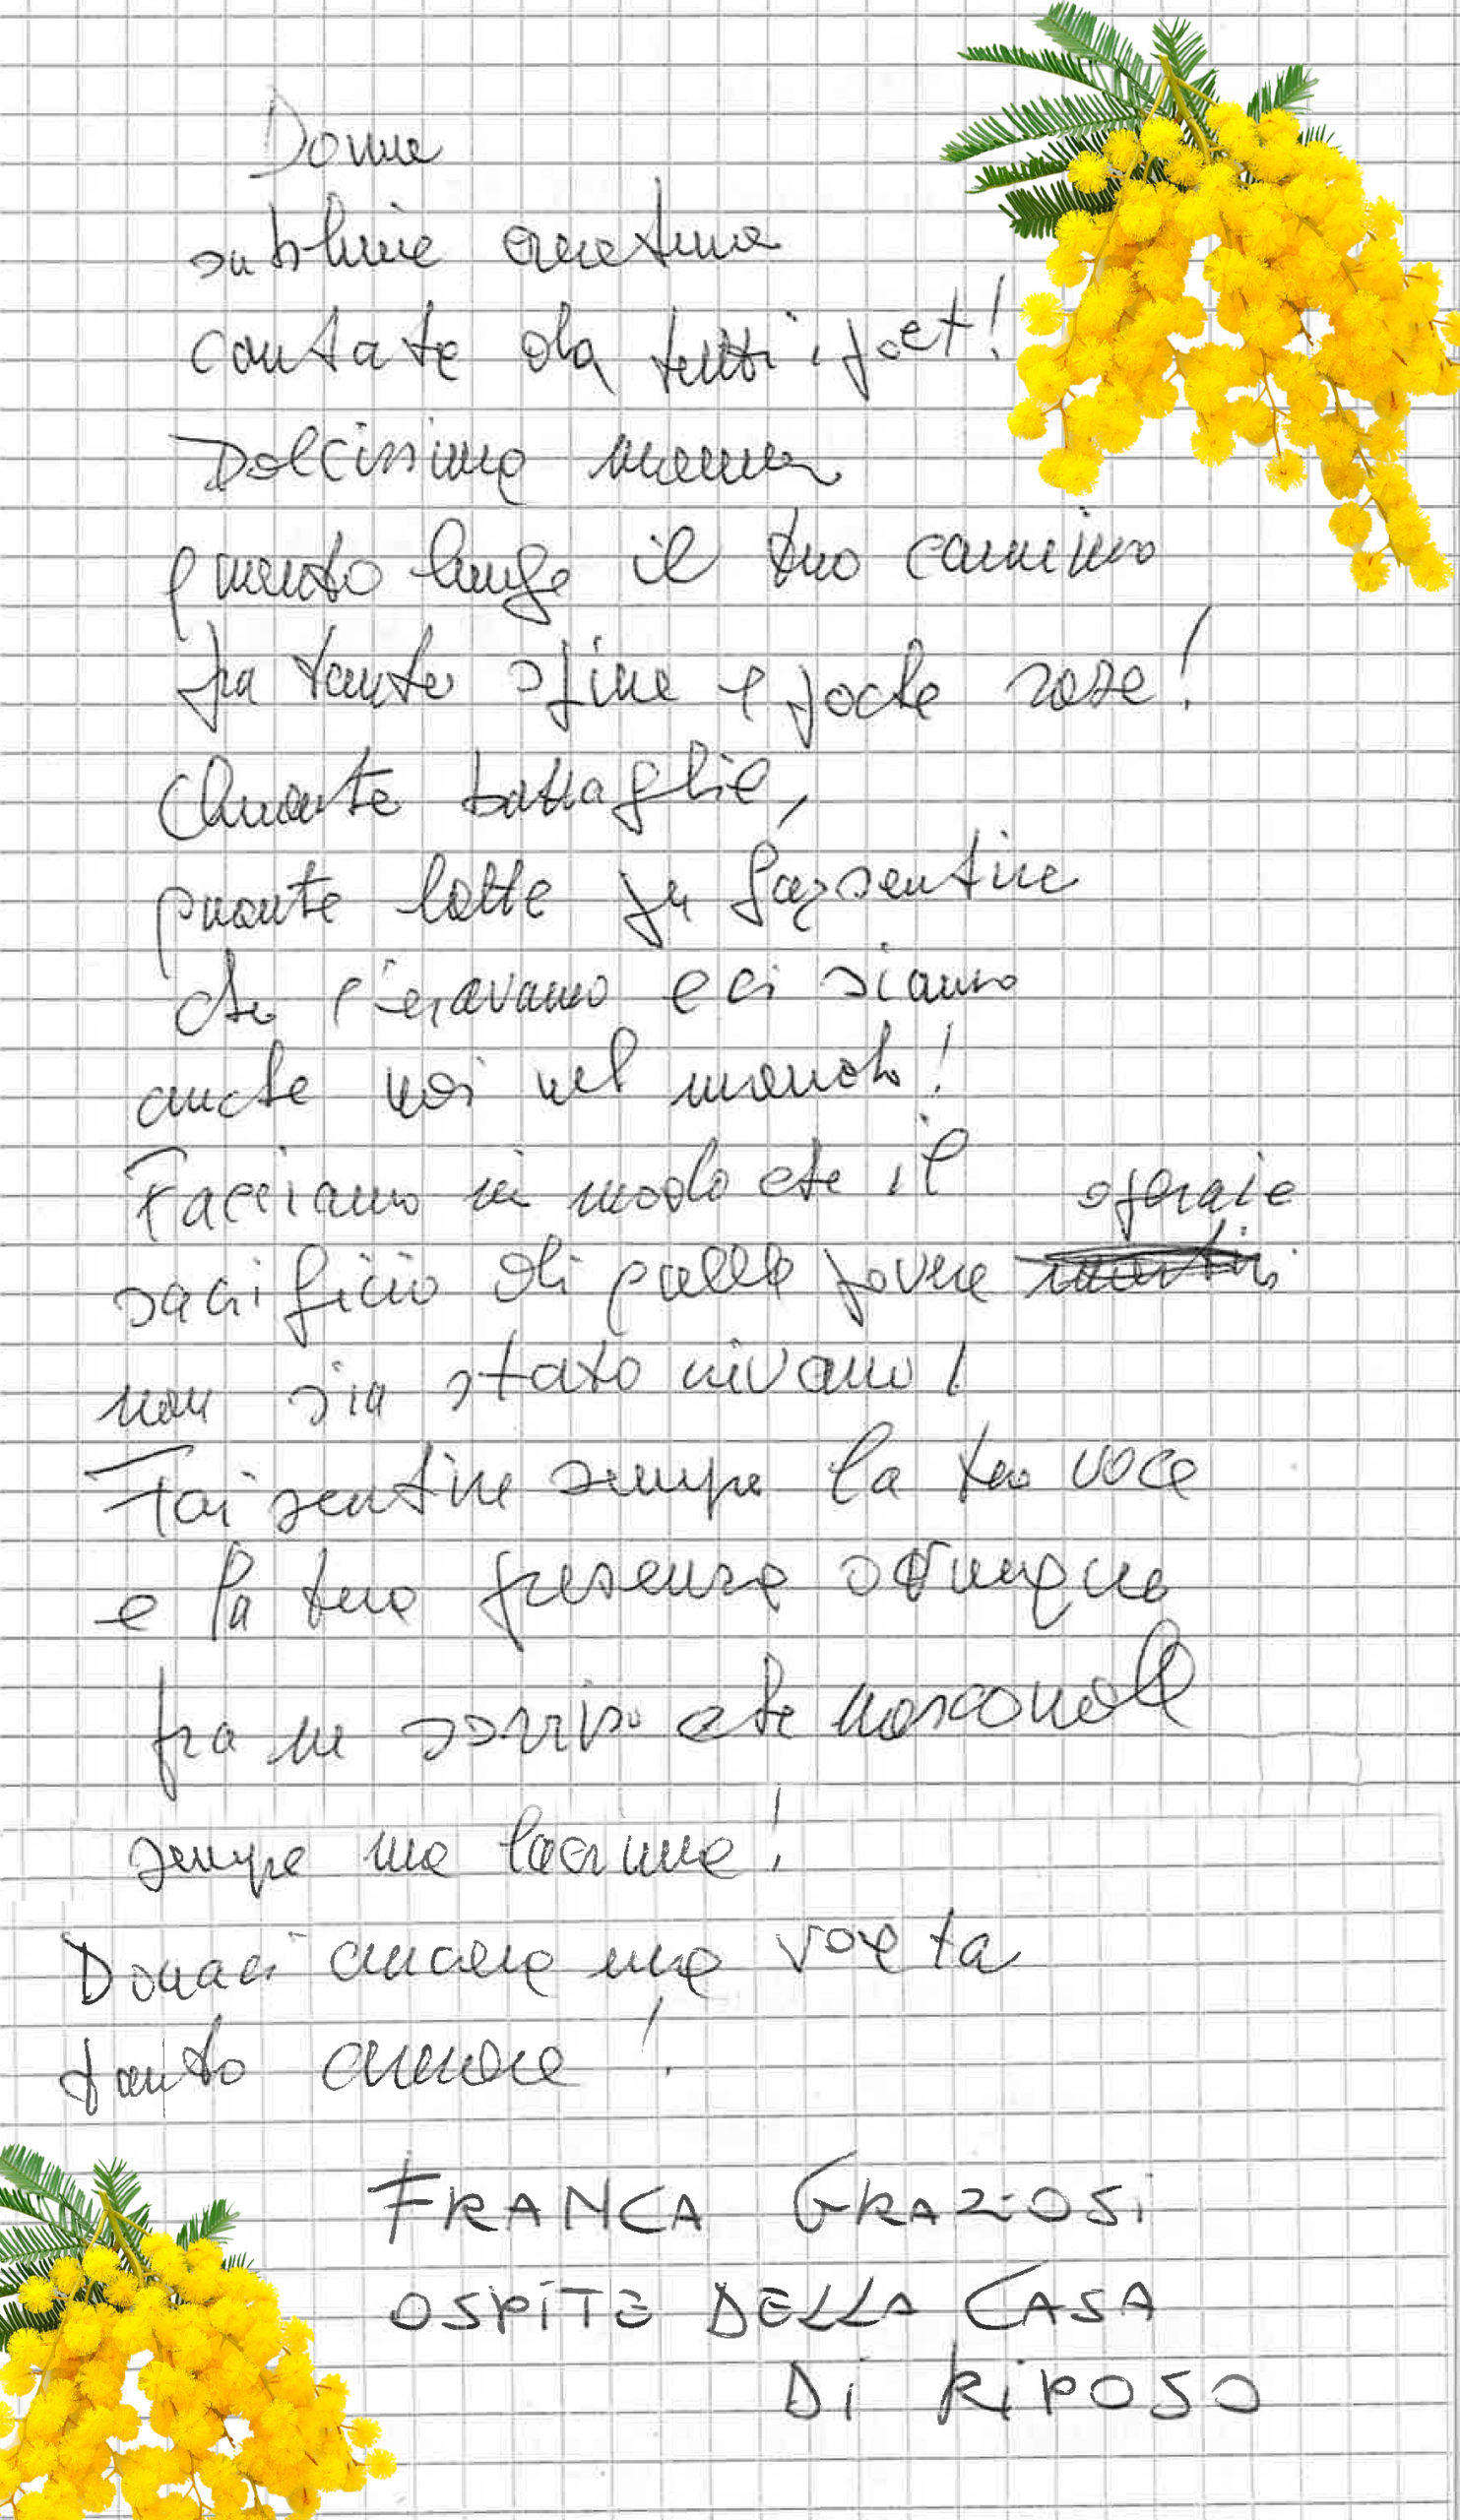 Donna
sublime creatura
cantata da tutti i poeti!
Dolcissima mamma
quanto lungo il tuo cammino
fra tante spine e poche rose!
Quante battaglie,
quante lotte per far sentire
che c'eravamo e ci siamo
anche noi nel mondo!
Facciamo in modo che il
sacrificio di quelle povere operaie
non sia stato invano!
Fai sentire sempre la tua voce
e la tua presenza ovunque
fra un sorriso che nasconde
sempre una lacrima!
Donaci ancora una volta
tanto amore!
FRANCA GRAZIOSI
OSPITE DELLA CASA
DI RIPOSO